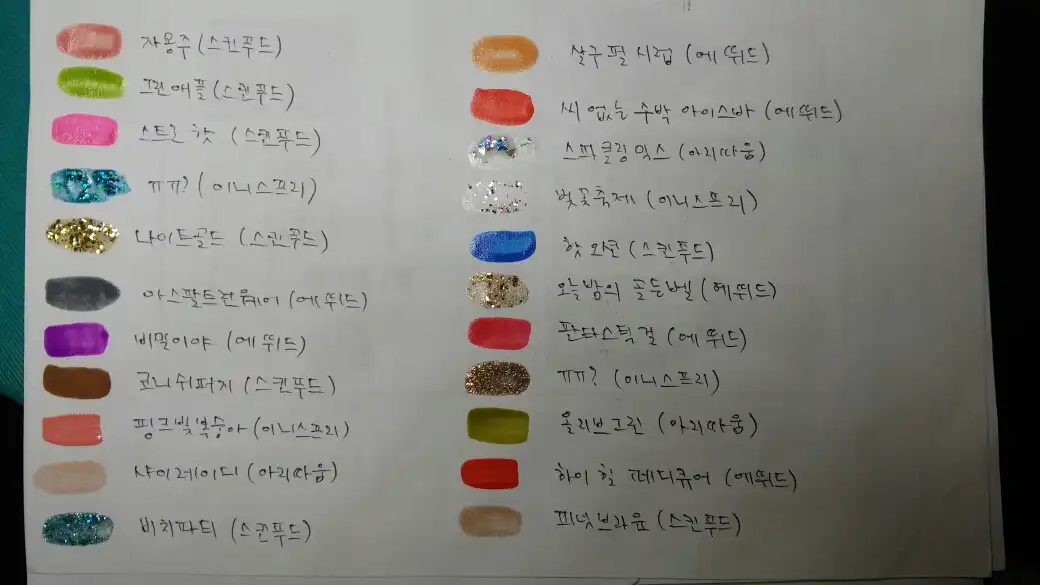 자몽주 (스킨푸드)
그린애플 (스킨푸드)
스트로 핫 (스킨푸드)
ㅠㅠ? (이니스프리)
나이트골드 (스킨푸드)
아스팔트런웨이 (에뛰드)
비밀이야 (에뛰드)
코니쉬퍼지 (스킨푸드)
핑크빛복숭아 (이니스프리)
샤이레이디 (아리따움)
비치파티 (스킨푸드)
살구펄시럽 (에뛰드)
씨 없는 수박 아이스바 (에뛰드)
스파클링믹스 (아리따움)
벚꽃축제 (이니스프리)
핫 오션 (스킨푸드)
오늘밤의 골든벨 (에뛰드)
판타스틱 걸 (에뛰드)
ㅠㅠ? (이니스프리)
올리브그린 (아리따움)
하이 힐 페디큐어 (에뛰드)
피넛브라운 (스킨푸드)